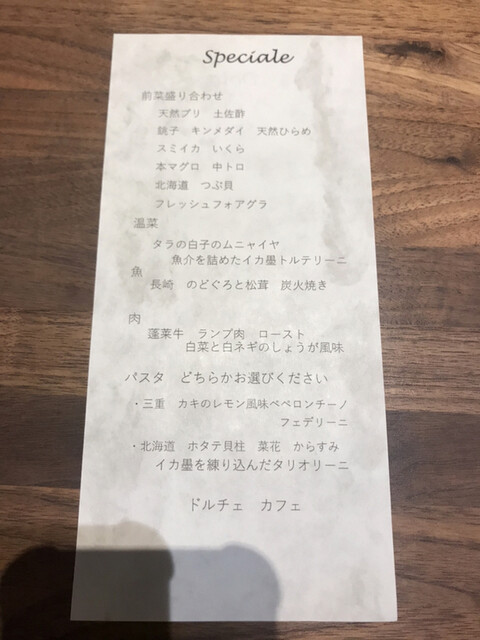 Speciale
前菜盛り合わせ
天然ブリ 土佐酢
銚子 キンメダイ 天然ひらめ
スミイカ いくら
本マグロ 中トロ
北海道 つぶ貝
フレッシュフォアグラ
温菜
タラの白子のムニャイヤ
魚介を詰めたイカ墨トルテリーニ
魚
長崎 のどぐろと松茸 炭火焼き
肉
蓬莱牛 ランプ肉 ロースト
白菜と白ネギのしょうが風味
パスタ どちらかお選びください
・三重 カキのレモン風味ペペロンチーノ
フェデリーニ
・北海道 ホタテ貝柱 菜花 からすみ
イカ墨を練り込んだタリオリーニ
ドルチェ カフェ